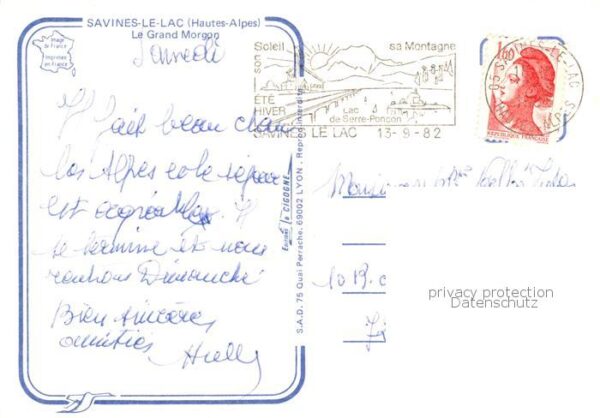 SAVINES-LE-LAC (Hautes-Alpes)
Le Grand Morgon
Image
de France
Imprimée
en France
Samedi
Il fait beau dans
les Alpes et le séjour
est agréable. Il
se termine et nous
rentrons Dimanche
Bien sincères
amitiés
Editions la CIGOGNE
S.A.D. 75 Quai Perrache. 69002 LYON. Reproduction interdite
Soleil
son
sa Montagne
ÉTÉ
HIVER
Lac
de Serre-Ponçon
SAVINES LE LAC 13-9-82
05 SAVINES-LE-LAC
1,60
REPUBLIQUE FRANÇAISE
Monsieur
10 19
privacy protection
Datenschutz